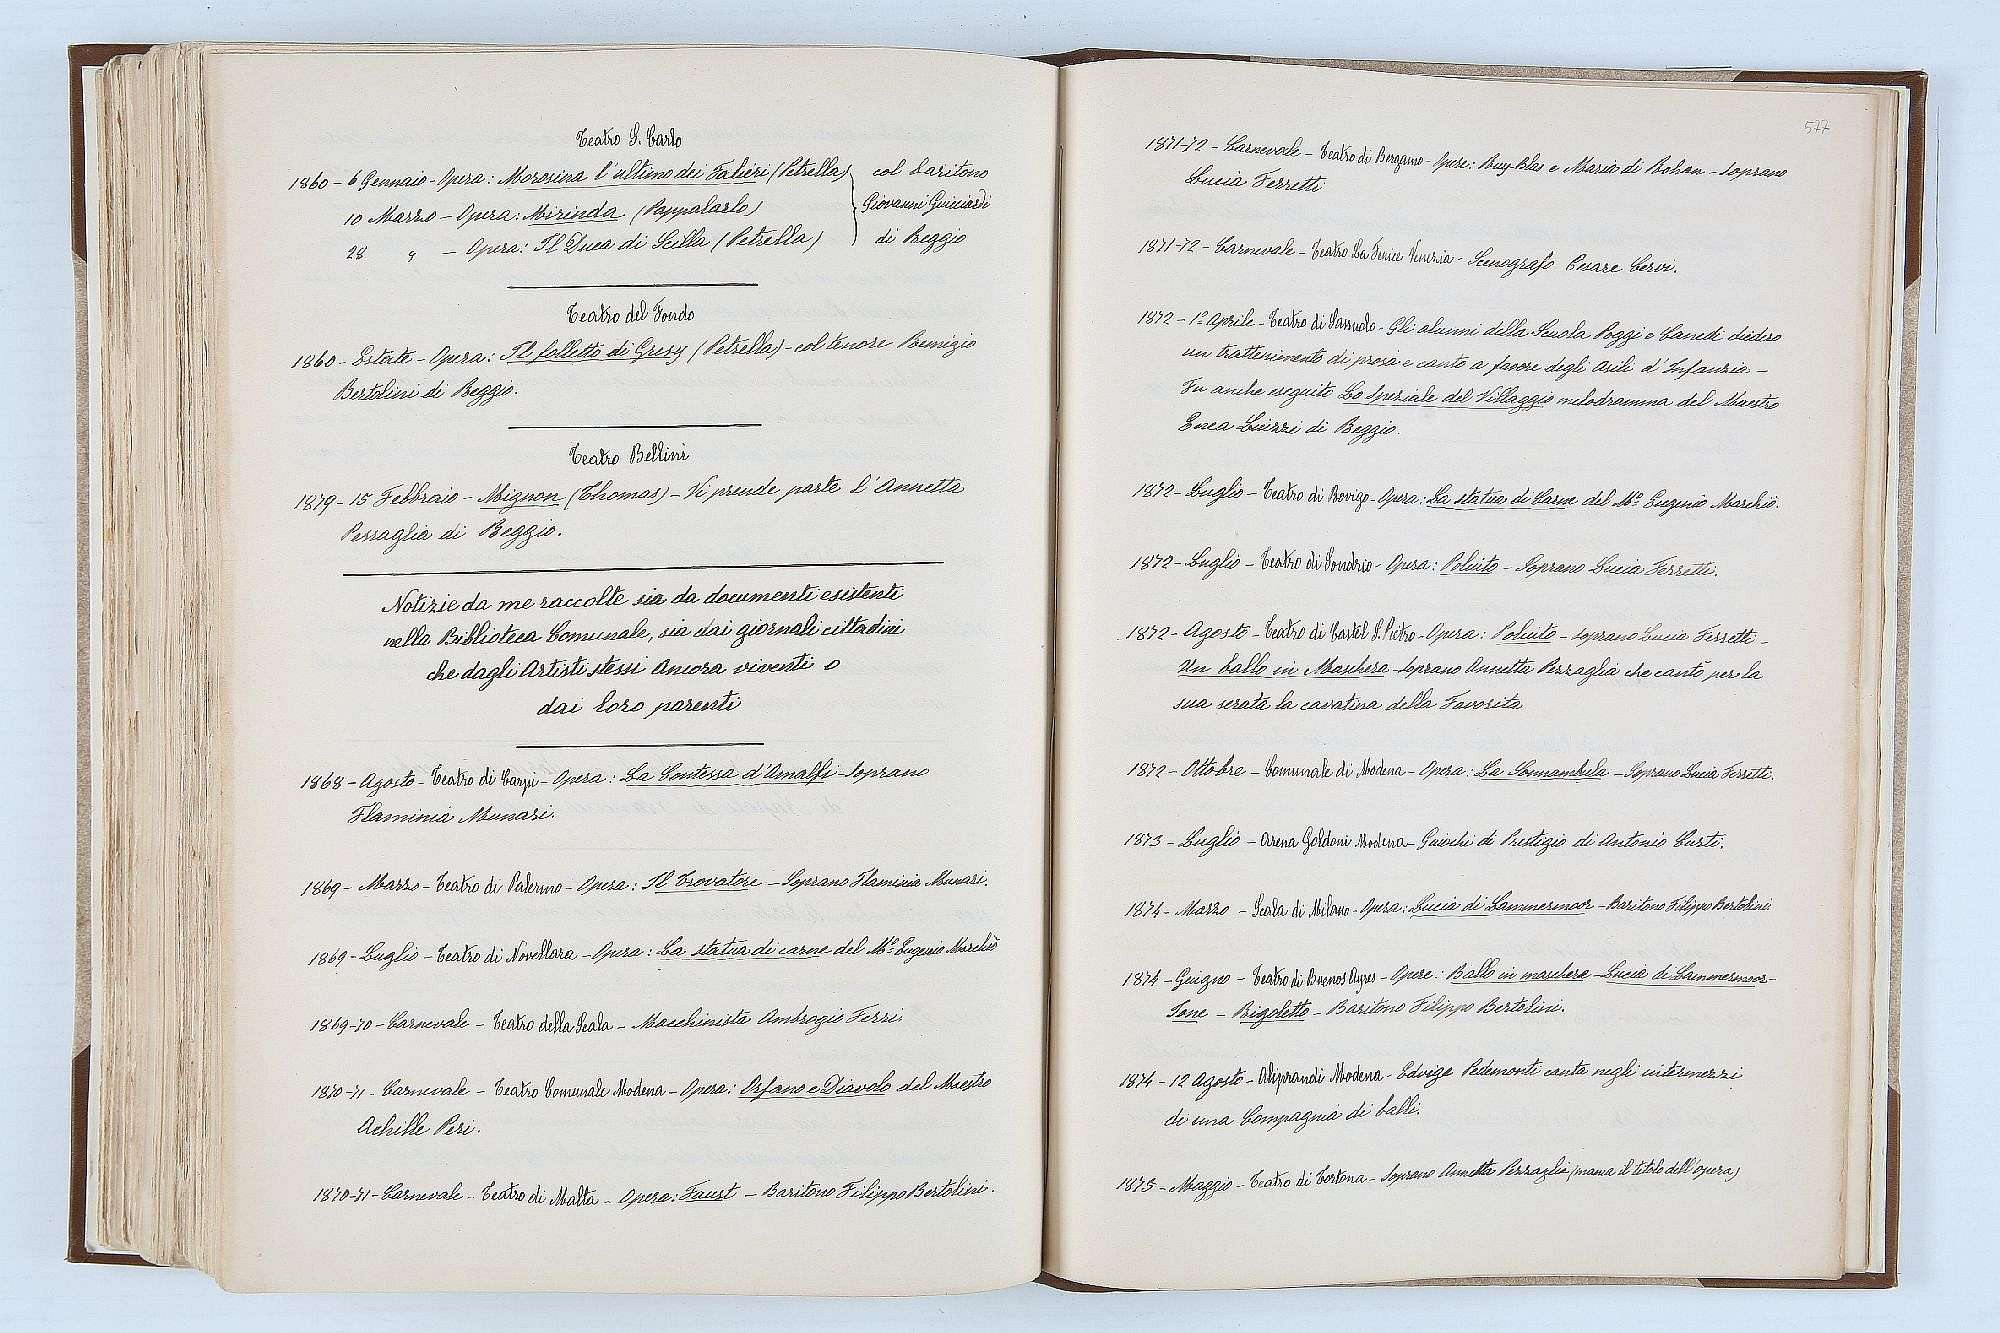 Teatro S. Carlo
1860 - 6 Gennaio - Opera: Morosina l'ultimo dei Falieri (Petrella) col baritono
10 Marzo - Opera: Mirinda (Pappalardo) Giovanni Guicciardi
28 " - Opera: Il Duca di Scilla (Petrella) di Reggio
Teatro del Fondo
1860 - Estate - Opera: Il folletto di Gresy (Petrella) - col tenore Remigio
Bertolini di Reggio.
Teatro Bellini
1879 - 15 Febbraio - Mignon (Thomas) - Vi prende parte l'Annetta
Pezzaglia di Reggio.
Notizie da me raccolte sia da documenti esistenti
nella Biblioteca Comunale, sia dai giornali cittadini
che dagli Artisti stessi ancora viventi o
dai loro parenti
1868 - Agosto - Teatro di Carpi - Opera: La Contessa d'Amalfi - Soprano
Flaminia Munari.
1869 - Marzo - Teatro di Palermo - Opera: Il Trovatore - Soprano Flaminia Munari.
1869 - Luglio - Teatro di Novellara - Opera: La statua di carne del Mo. Eugenio Marchiò
1869-70 - Carnevale - Teatro della Scala - Macchinista Ambrogio Ferri.
1870-71 - Carnevale - Teatro Comunale Modena - Opera: Orfano e Diavolo del Maestro
Achille Peri.
1870-71 - Carnevale - Teatro di Malta - Opera: Faust - Baritono Filippo Bertolini.
577
1871-72 - Carnevale - Teatro di Bergamo - Opere: Ruy Blas e Maria di Rohan - Soprano
Lucia Ferretti
1871-72 - Carnevale - Teatro La Fenice Venezia - Scenografo Cesare Cervi.
1872 - 1° Aprile - Teatro di Sassuolo - Gli alunni della Scuola Poggi e Canedi diedero
un trattenimento di prosa e canto a favore degli Asili d'Infanzia -
Fu anche eseguito Lo Speziale del Villaggio melodramma del Maestro
Enea Guizzi di Reggio.
1872 - Luglio - Teatro di Rovigo - Opera: La statua di Carne del Mo. Eugenio Marchiò.
1872 - Luglio - Teatro di Sondrio - Opera: Poliuto - Soprano Lucia Ferretti.
1872 - Agosto - Teatro di Castel S. Pietro - Opera: Poliuto - Soprano Lucia Ferretti -
Un ballo in Maschera - Soprano Annetta Pezzaglia che cantò per la
sua serata la cavatina della Favorita
1872 - Ottobre - Comunale di Modena - Opera: La Sonnambula - Soprano Lucia Ferretti.
1873 - Luglio - Arena Goldoni Modena - Giuochi di Prestigio di Antonio Curti.
1874 - Marzo - Scala di Milano - Opera: Lucia di Lammermoor - Baritono Filippo Bertolini.
1874 - Giugno - Teatro di Buenos Ayres - Opere: Ballo in maschera - Lucia di Lammermoor -
Jone - Rigoletto - Baritono Filippo Bertolini.
1874 - 12 Agosto - Aliprandi Modena - Edvige Pedemonti canta negli intermezzi
di una Compagnia di balli.
1875 - Maggio - Teatro di Tortona - Soprano Annetta Pezzaglia (manca il titolo dell'opera)